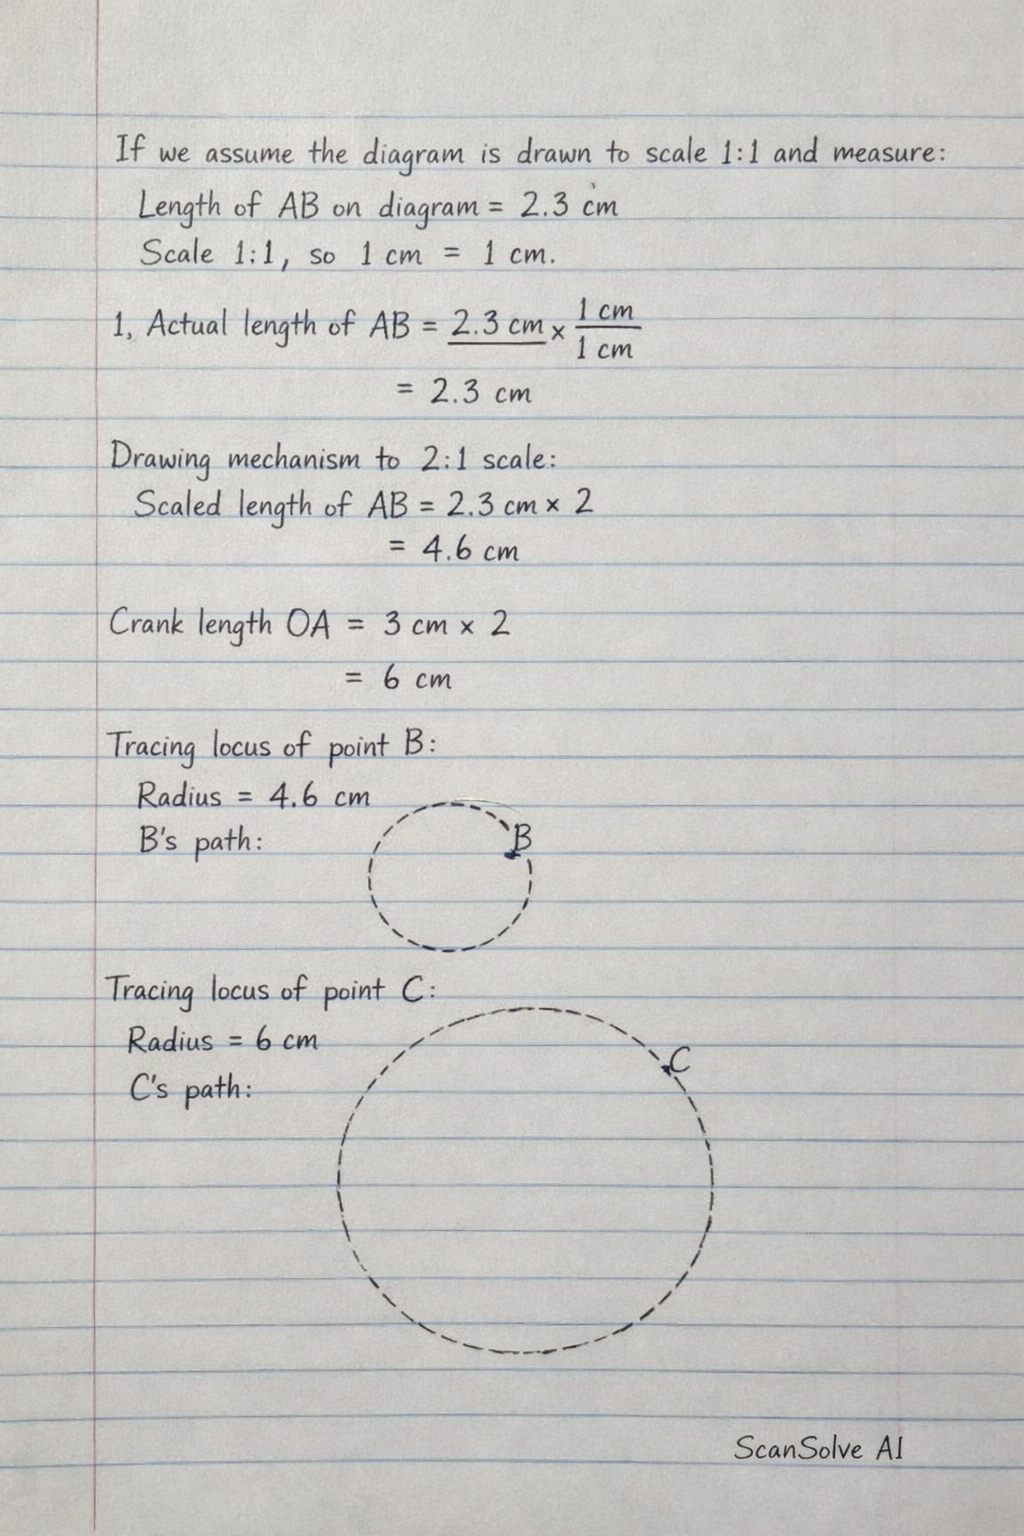 If we assume the diagram is drawn to scale 1:1 and measure:
Length of AB on diagram = 2.3 cm
Scale 1:1, so 1 cm = 1 cm.
1, Actual length of AB = 2.3 cm × 1 cm / 1 cm
= 2.3 cm
Drawing mechanism to 2:1 scale:
Scaled length of AB = 2.3 cm × 2
= 4.6 cm
Crank length OA = 3 cm × 2
= 6 cm
Tracing locus of point B:
Radius = 4.6 cm
B's path:
B
Tracing locus of point C:
Radius = 6 cm
C
C's path:
ScanSolve AI